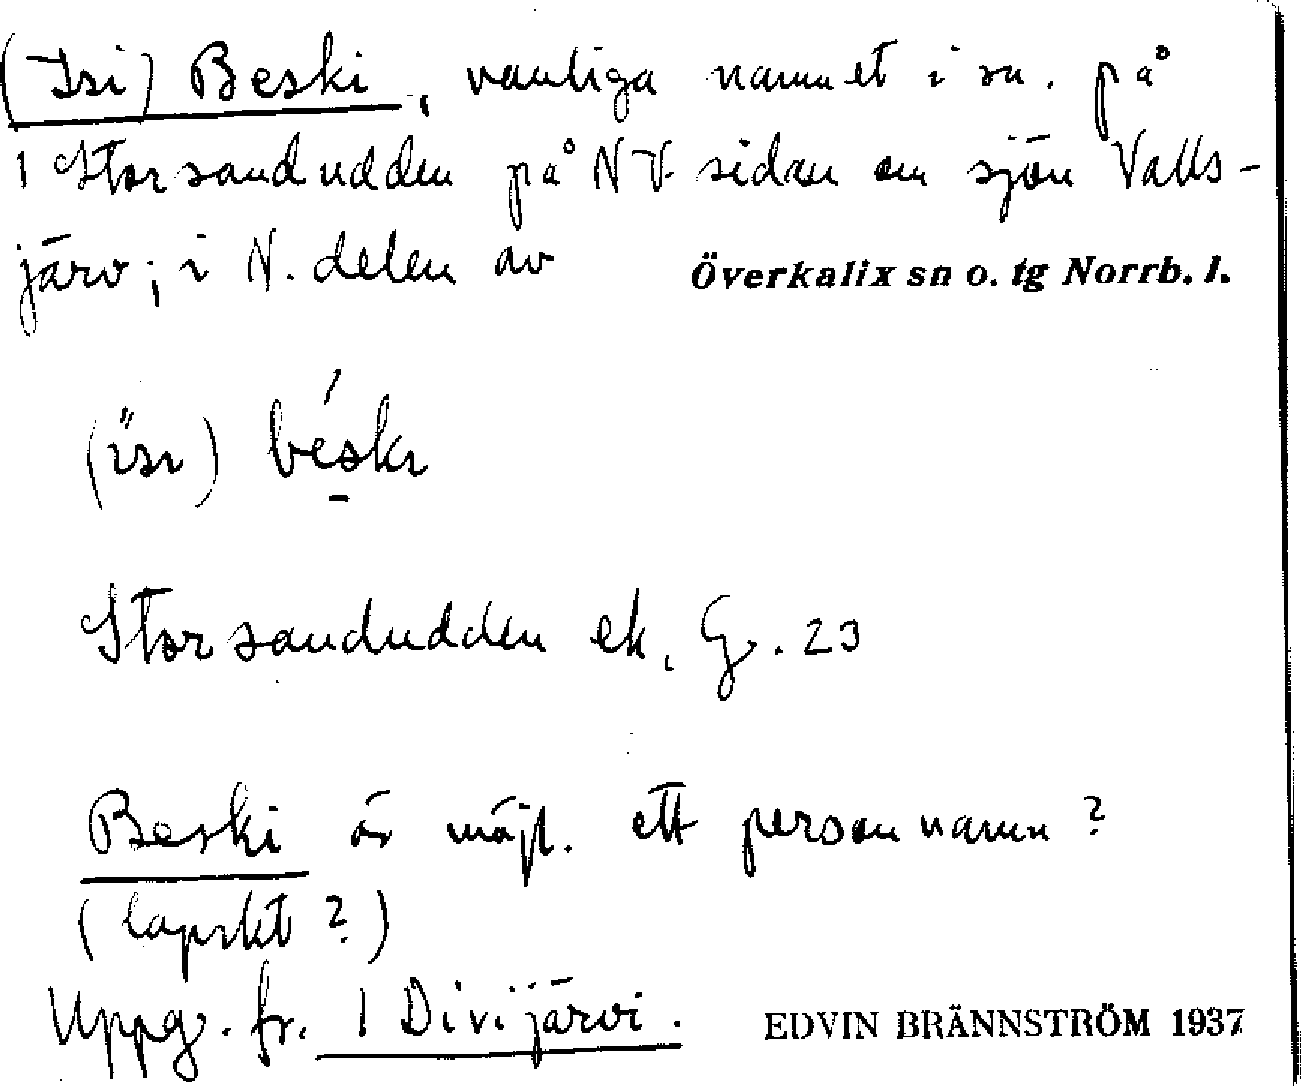 (Isi) Beski, vanliga namnet i sn. på
1 Storsandudden på NV sidan om sjön Valls-
järv; i N. delen av Överkalix sn o. tg Norrb. l.
(ïsı) béskı
Storsandudden ek. G. 23
Beski är möjl. ett personnamn?
(lapskt?)
Uppg. fr. 1 Divijärvi.
EDVIN BRÄNNSTRÖM 1937